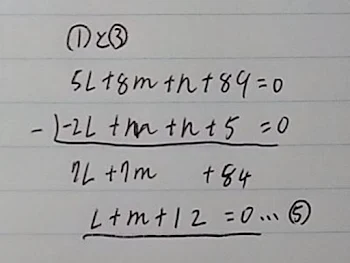 ①と③
5l+8m+n+89=0
-)-2l+m+n+5=0
7l+7m +84
l+m+12=0…⑤